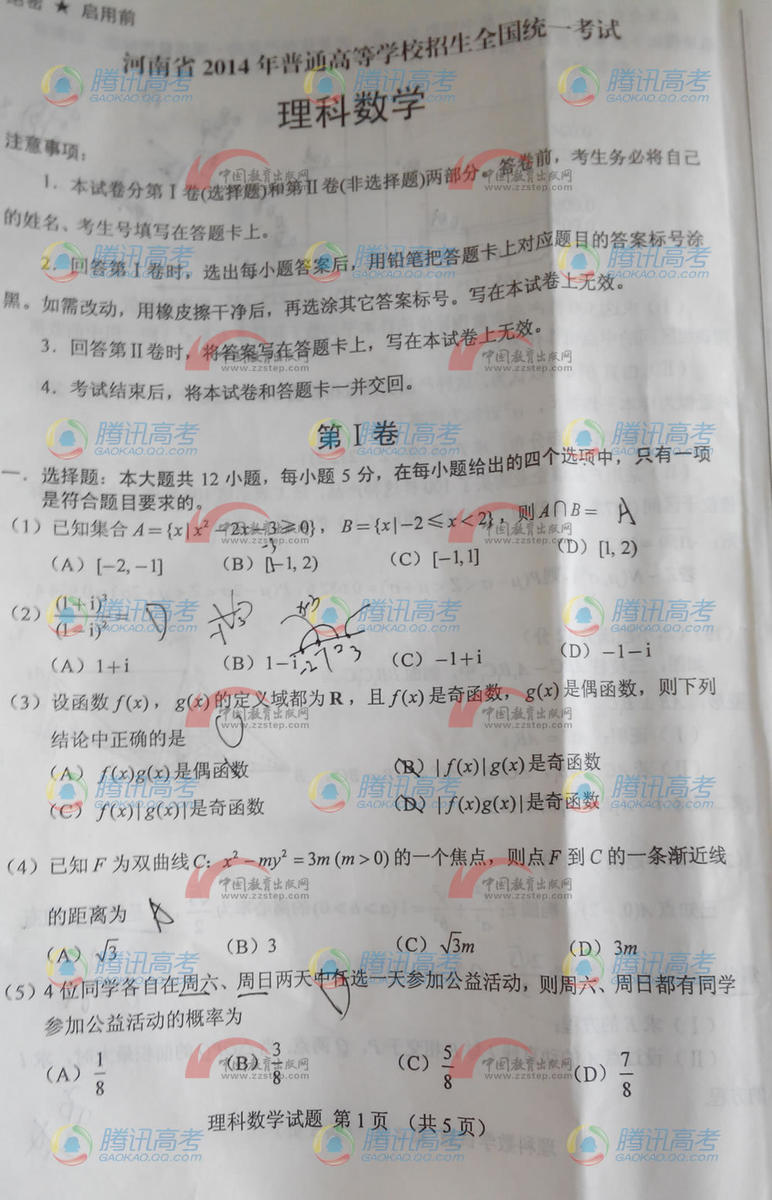 绝密 ★ 启用前
河南省 2014 年普通高等学校招生全国统一考试
理科数学
注意事项：
1．本试卷分第Ⅰ卷(选择题)和第Ⅱ卷(非选择题)两部分。答卷前，考生务必将自己
的姓名、考生号填写在答题卡上。
2．回答第Ⅰ卷时，选出每小题答案后，用铅笔把答题卡上对应题目的答案标号涂
黑。如需改动，用橡皮擦干净后，再选涂其它答案标号。写在本试卷上无效。
3．回答第Ⅱ卷时，将答案写在答题卡上，写在本试卷上无效。
4．考试结束后，将本试卷和答题卡一并交回。
第Ⅰ卷
一．选择题：本大题共 12 小题，每小题 5 分，在每小题给出的四个选项中，只有一项
是符合题目要求的。
（1）已知集合 A={x|x²－2x－3≥0}，B={x|－2≤x<2}，则 A∩B= A
（A）[－2,－1] （B）[－1,2) （C）[－1,1] （D）[1,2)
（2）(1+i)³/(1－i)² = D
（A）1+i （B）1－i （C）－1+i （D）－1－i
（3）设函数 f(x)，g(x) 的定义域都为 R，且 f(x) 是奇函数，g(x) 是偶函数，则下列
结论中正确的是
（A）f(x)g(x) 是偶函数 （B）|f(x)|g(x) 是奇函数
（C）f(x)|g(x)| 是奇函数 （D）|f(x)g(x)| 是奇函数
（4）已知 F 为双曲线 C：x²－my²=3m (m>0) 的一个焦点，则点 F 到 C 的一条渐近线
的距离为 A
（A）√3 （B）3 （C）√3m （D）3m
（5）4 位同学各自在周六、周日两天中任选一天参加公益活动，则周六、周日都有同学
参加公益活动的概率为
（A）1/8 （B）3/8 （C）5/8 （D）7/8
理科数学试题 第 1 页 （共 5 页）
腾讯高考
GAOKAO.QQ.COM
中国教育出版网
www.zzstep.com